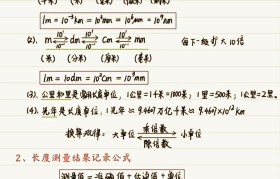 (千米) (米) (毫米) (微米) (纳米)
1m = 10⁻³km = 10³mm = 10⁶μm = 10⁹nm
(2). m dm cm mm 每下一级扩大10倍
10¹ 10¹ 10¹
(米) (分米) (厘米) (毫米)
1m = 10dm = 10²cm = 10³mm
(3). 公里和里是常用长度单位, 1公里=1千米=1000米; 1里=500米; 1公里=2里。
(4). 光年是长度单位, 1光年≈9.4607万亿千米≈9.4607×10¹²km
换算规律: 大单位 乘倍数 小单位
除倍数
2、长度测量结果记录公式
测量值 = 准确值 + 估读值 + 单位